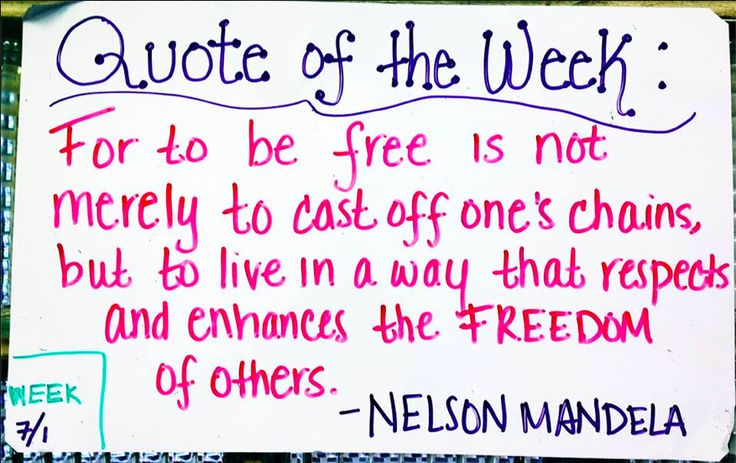 Quote of the Week:
For to be free is not
merely to cast off one's chains,
but to live in a way that respects
and enhances the FREEDOM
of others.
-NELSON MANDELA
WEEK
7/1